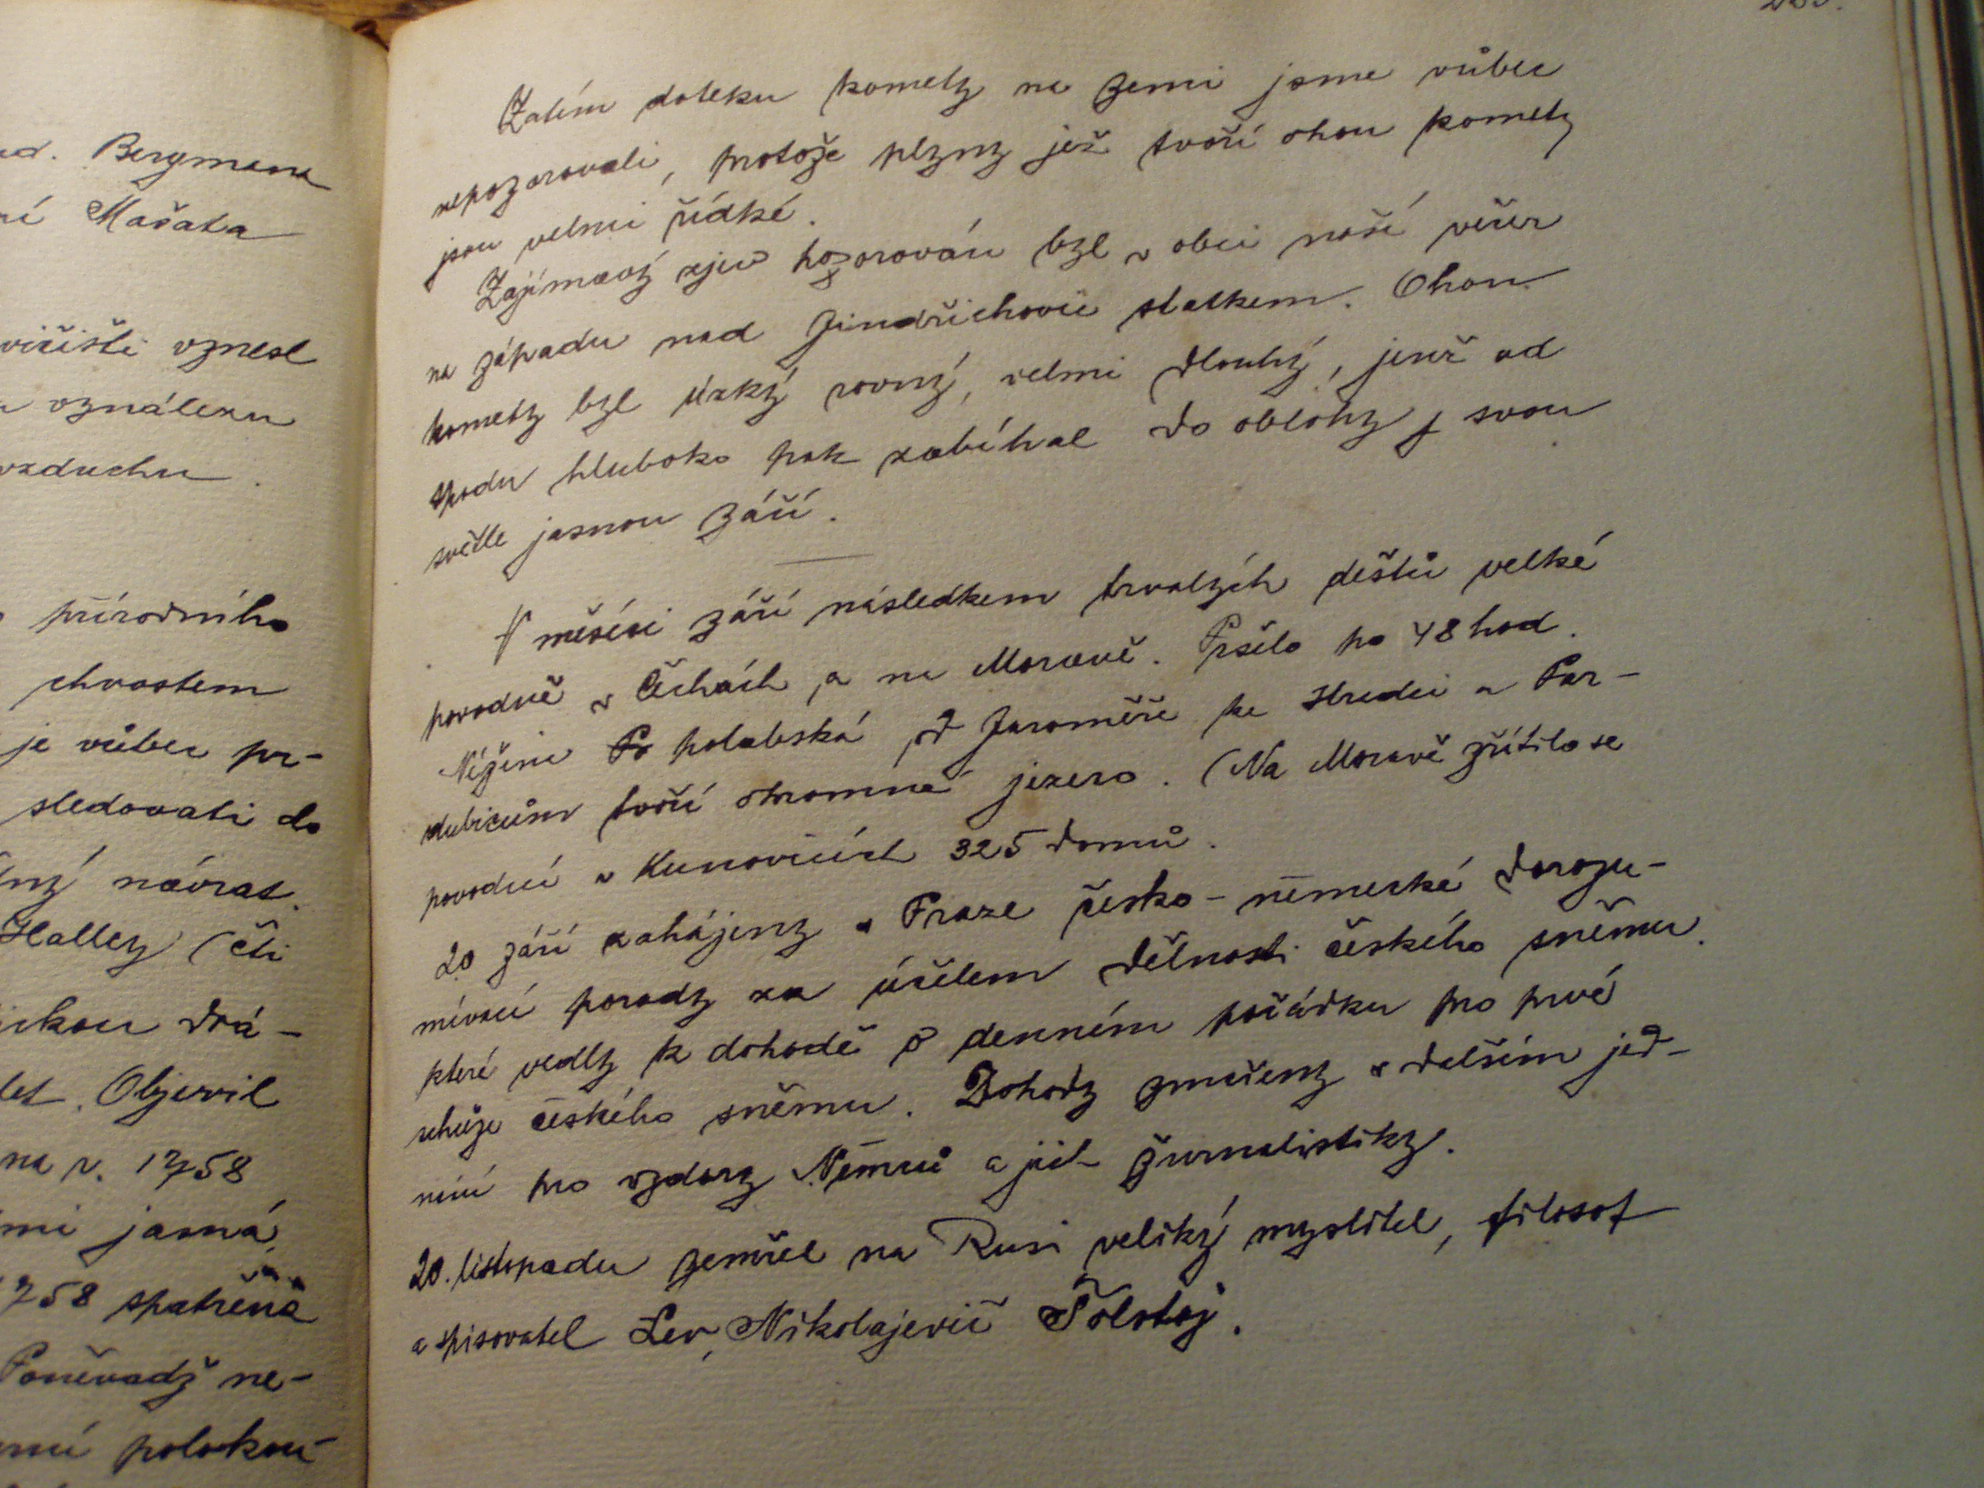 ud. Bergmana
ní Mašata
vičišti vznesl
u vználezu
vzduchu.
přírodního
chvostem
je vůbec po-
sledovati do
ný návrat.
Halley (čti
ickou drá-
let. Objevil
na r. 1758
mi jasná,
1758 spatřena
Poněvadž ne-
polokou-
Zatím doteku komety na zemi jsme vůbec
nepozorovali, protože plyny jež tvoří ohon komety
jsou velmi řídké.
Zajímavý zjev pozorován byl v obci naší večer
na západu nad Jindřichovic statkem. Ohon
komety byl úzký rovný, velmi dlouhý, jenž od
spodu hluboko pak zabíhal do oblohy svou
světle jasnou září.
V měsíci září následkem trvalých dešťů velké
povodně v Čechách, a na Moravě. Pršelo po 48 hod.
Nížina Po polabská od Jaroměře ke Hradci a Par-
dubicům tvoří ohromné jezero. (Na Moravě zřítilo se
povodní v Kunovicích 325 domů.
20 září zahájeny v Praze česko-německé dorozu-
mívací porady za účelem dělnosti českého sněmu.
které vedly k dohodě o denním pořádku pro prvé
schůze českého sněmu. Dohody zmařeny v dalším jed-
nání pro vzdory Němců a jich žurnalistiky.
20. listopadu zemřel na Rusi veliký myslitel, filosof
a spisovatel Lev Nikolajevič Tolstoj.